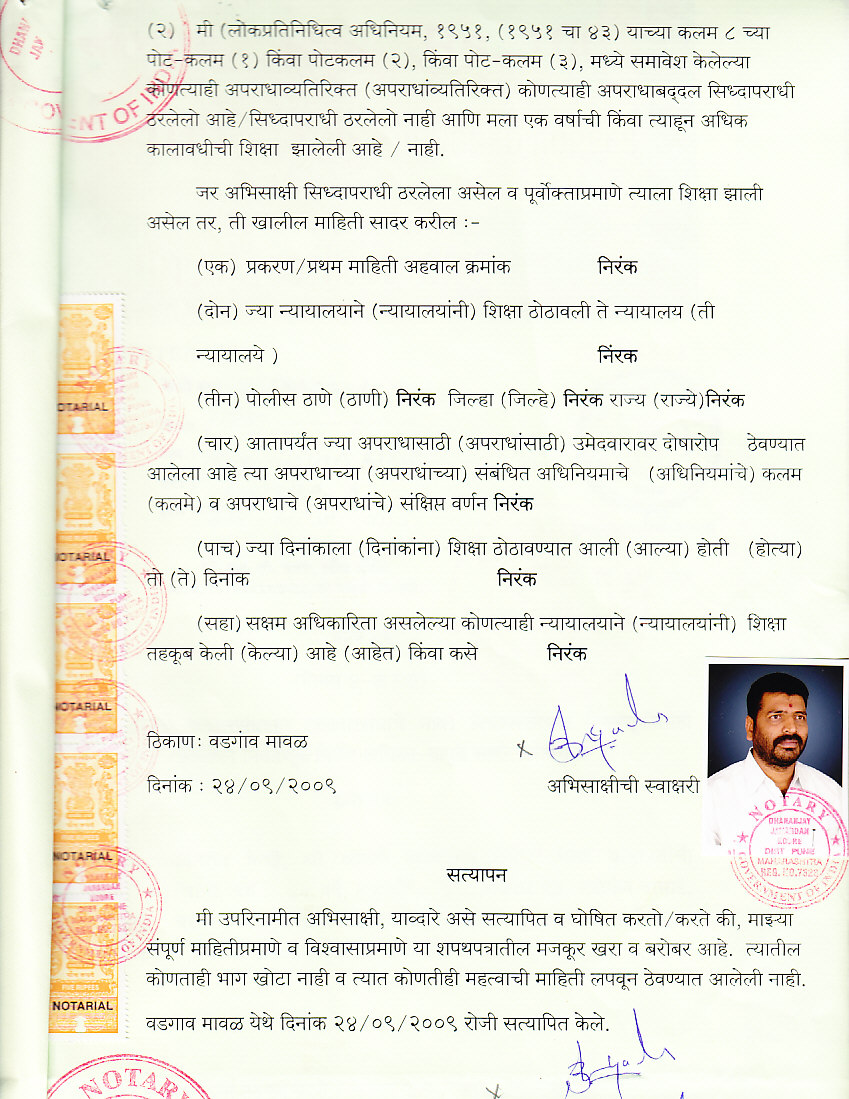 (२) मी (लोकप्रतिनिधित्व अधिनियम, १९५१, (१९५१ चा ४३) याच्या कलम ८ च्या
पोट-कलम (१) किंवा पोटकलम (२), किंवा पोट-कलम (३), मध्ये समावेश केलेल्या
कोणत्याही अपराधाव्यतिरिक्त (अपराधांव्यतिरिक्त) कोणत्याही अपराधाबद्दल सिध्दापराधी
ठरलेलो आहे/सिध्दापराधी ठरलेलो नाही आणि मला एक वर्षाची किंवा त्याहून अधिक
कालावधीची शिक्षा झालेली आहे / नाही.
जर अभिसाक्षी सिध्दापराधी ठरलेला असेल व पूर्वोक्ताप्रमाणे त्याला शिक्षा झाली
असेल तर, ती खालील माहिती सादर करील :-
(एक) प्रकरण/प्रथम माहिती अहवाल क्रमांक निरंक
(दोन) ज्या न्यायालयाने (न्यायालयांनी) शिक्षा ठोठावली ते न्यायालय (ती
न्यायालये ) निंरक
(तीन) पोलीस ठाणे (ठाणी) निरंक जिल्हा (जिल्हे) निरंक राज्य (राज्ये)निरंक
(चार) आतापर्यंत ज्या अपराधासाठी (अपराधांसाठी) उमेदवारावर दोषारोप ठेवण्यात
आलेला आहे त्या अपराधाच्या (अपराधांच्या) संबंधित अधिनियमाचे (अधिनियमांचे) कलम
(कलमे) व अपराधाचे (अपराधांचे) संक्षिप्त वर्णन निरंक
(पाच) ज्या दिनांकाला (दिनांकांना) शिक्षा ठोठावण्यात आली (आल्या) होती (होत्या)
तो (ते) दिनांक निरंक
(सहा) सक्षम अधिकारिता असलेल्या कोणत्याही न्यायालयाने (न्यायालयांनी) शिक्षा
तहकूब केली (केल्या) आहे (आहेत) किंवा कसे निरंक
ठिकाण: वडगांव मावळ
दिनांक : २४/०९/२००९ अभिसाक्षीची स्वाक्षरी
सत्यापन
मी उपरिनामीत अभिसाक्षी, याव्दारे असे सत्यापित व घोषित करतो/करते की, माझ्या
संपूर्ण माहितीप्रमाणे व विश्वासाप्रमाणे या शपथपत्रातील मजकूर खरा व बरोबर आहे. त्यातील
कोणताही भाग खोटा नाही व त्यात कोणतीही महत्वाची माहिती लपवून ठेवण्यात आलेली नाही.
वडगाव मावळ येथे दिनांक २४/०९/२००९ रोजी सत्यापित केले.
NOTARIAL
NOTARIAL
NOTARIAL
NOTARIAL
NOTARIAL
NOTARY
DHANANJAY
MAHARASHTRA
GOVERNMENT OF INDIA
NOTARY